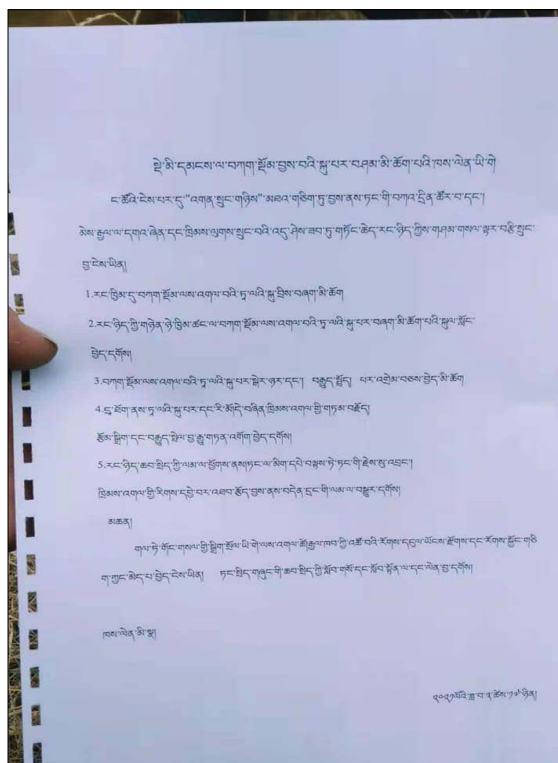 སྡེ་མི་དམངས་ལ་བཀག་སྡོམ་བྱས་བའི་སྐུ་པར་བཤམ་མི་ཆོག་པའི་ཁས་ལེན་ཡི་གེ
ང་ཚོའི་ངེས་པར་དུ་"འགན་སྲུང་གཉིས"་མཐའ་གཅིག་ཏུ་བྱས་ནས་ཏང་གི་བཀའ་དྲིན་ཚོར་བ་དང་།
མེས་རྒྱལ་ལ་དགའ་ཞེན་དང་ཁྲིམས་ལུགས་སྲུང་བའི་འདུ་ཤེས་ཟབ་ཏུ་གཏོང་ཆེད་རང་ཉིད་ཀྱིས་གཤམ་གསལ་ལྟར་བརྩི་སྲུང་
བྱ་ངེས་ཡིན།
1.རང་ཁྱིམ་དུ་བཀག་སྡོམ་ལས་འགལ་བའི་ཏཱ་ལའི་སྐུ་བྲིས་བཞག་མི་ཆོག
2.རང་ཉིད་ཀྱི་གཉེན་ཉེ་ཁྱིམ་ཚང་ལ་བཀག་སྡོམ་ལས་འགལ་བའི་ཏཱ་ལའི་སྐུ་པར་བཞག་མི་ཆོག་པའི་སྐུལ་སློང་
བྱེད་དགོས།
3.བཀག་སྡོམ་ལས་འགལ་བའི་ཏཱ་ལའི་སྐུ་པར་སྒེར་ཉར་དང་། བརྒྱུད་སྤྲོད། པར་འགྲེམ་བཅས་བྱེད་མི་ཆོག
4.དྲྭ་ཐོག་ནས་ཏཱ་ལའི་སྐུ་པར་དང་རི་མོ།དེ་བཞིན་ཁྲིམས་འགལ་གྱི་གཏམ་བརྗོད།
རྩོམ་སྒྲིག་དང་བརྒྱུད་སྤེལ་བྱ་རྒྱུ་གཏན་འགོག་བྱེད་དགོས།
5.རང་ཉིད་ཆབ་སྲིད་ཀྱི་ལམ་ལ་ཕྱོགས་ནས།ཏང་ལ་མིག་དཔེ་བལྟས་ཏེ་ཏང་གི་རྗེས་སུ་འབྲང་།
ཁྲིམས་འགལ་གྱི་རིགས་དབྱེ་བར་འཐབ་རྩོད་བྱས་ནས་བདེན་དྲང་གི་ལམ་ལ་བསྒྱུར་དགོས།
མཆན།
གལ་ཏེ་གོང་གསལ་གྱི་སྒྲིག་སྲོལ་ཡི་གེ་ལས་འགལ་ཚེ།རྒྱལ་ཁབ་ཀྱི་འཚོ་བའི་རོགས་དངུལ་ཡོངས་རྫོགས་དང་རོགས་སྐྱོང་གཅི
ག་ཀྱང་མེད་པ་བྱེད་ངེས་ཡིན། ཏང་སྲིད་གཞུང་གི་ཆབ་སྲིད་ཀྱི་སློབ་གསོ་དང་སློབ་སྟོན་ལ་དང་ལེན་བྱ་དགོས།
ཁས་ལེན་མི་སྣ།
༢༠༢༡ལོའི་ཟླ་བ་༢་ཚེས་༡༧་ཉིན།